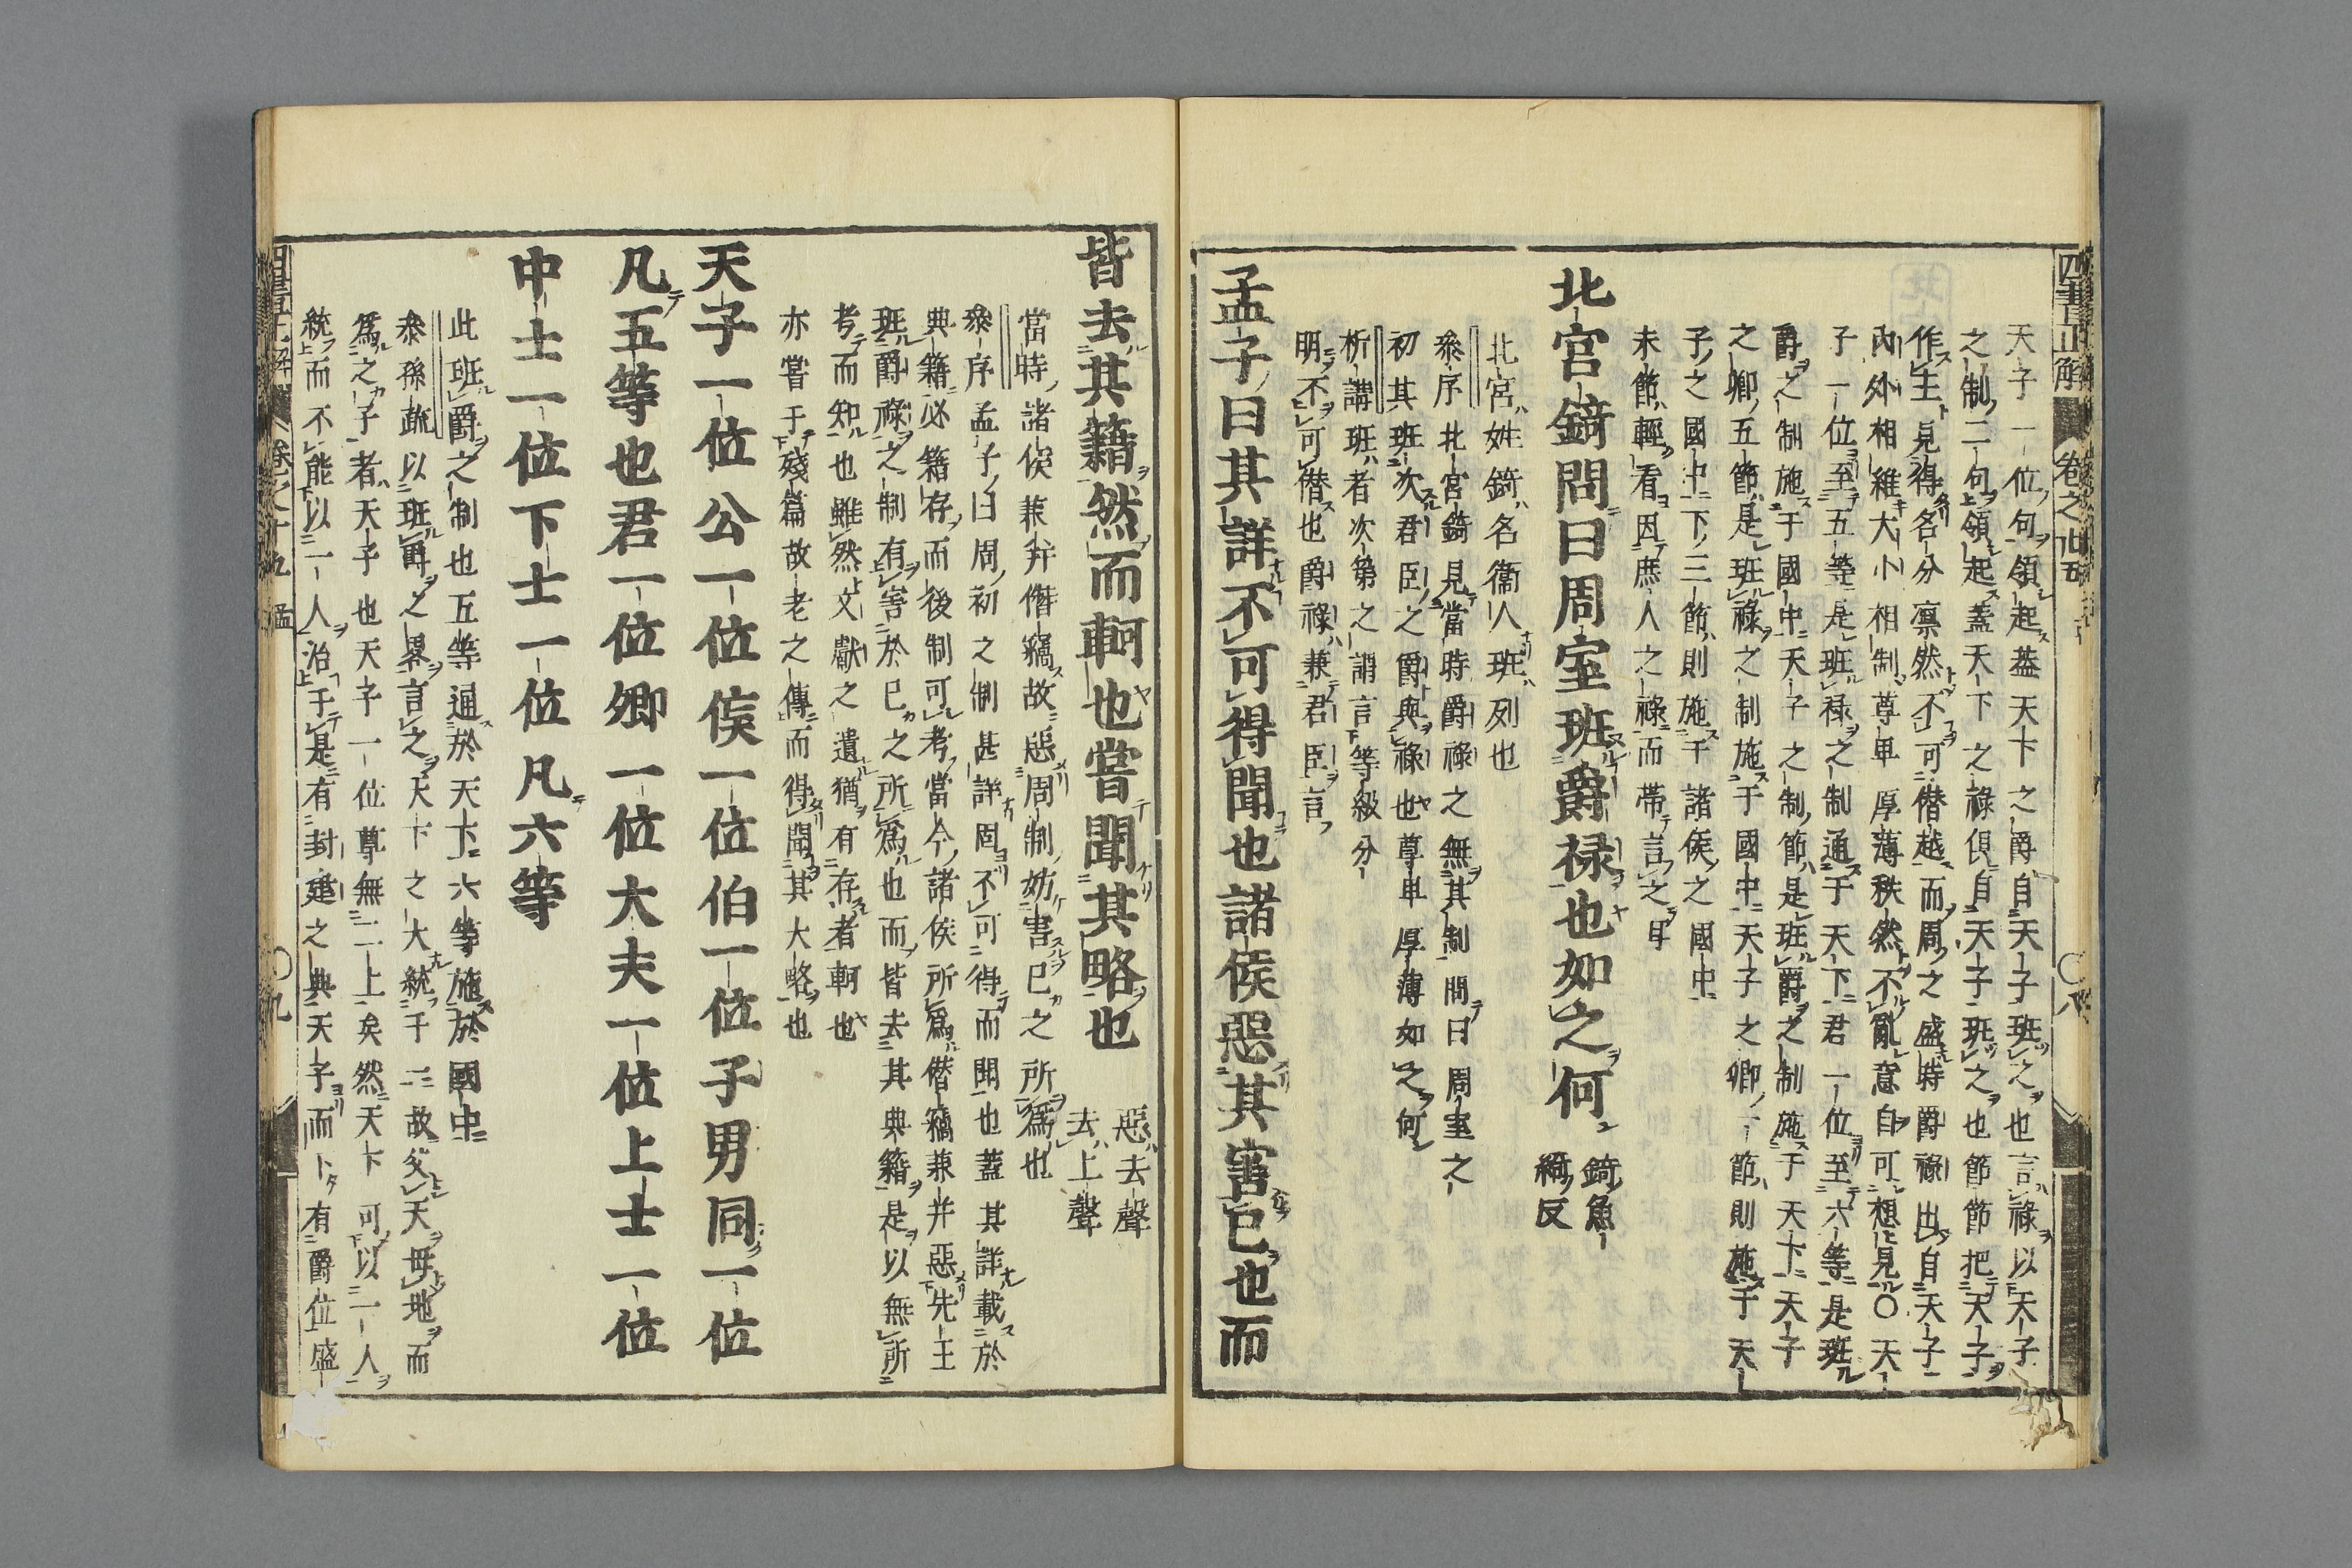 四書正解
卷之廿五
〇八
天子一位句領起葢天下之爵自天子班之也言祿以天子
之制二句領起蓋天下之祿俱自天子班之也節節把天子
作主見得名分凛然不可僣越而周之盛時爵祿出自天子
內外相維大小相制尊卑厚薄秩然不亂意自可想見〇天
子一位至五等是班祿之制通于天下君一位至六等是班
爵之制施于國中天子之制節是班爵之制施于天下天子
之卿五節是班祿之制施于國中天子之卿一節則施于天
子之國中下三節則施于諸侯之國中
未節輕看因庶人之祿而帶言之耳
北宮錡問曰周室班爵祿也如之何
錡魚
綺反
北宮姓錡名衞人班列也
叅序北宮錡見當時爵祿之無其制問曰周室之
初其班次君臣之爵與祿也尊卑厚薄如之何
析講班者次第之謂言等級分
明不可僣也爵祿兼君臣言
孟子曰其詳不可得聞也諸侯惡其害已也而
皆去其籍然而軻也嘗聞其略也
惡去聲
去上聲
當時諸侯兼并僭竊故惡周制妨害已之所爲也
叅序孟子曰周初之制甚詳固不可得而聞也蓋其詳載於
典籍必籍存而後制可考當今諸侯所爲僣竊兼并惡先王
班爵祿之制有害於已之所爲也而皆去其典籍是以無所
考而知也雖然文獻之遺猶有存者軻也
亦嘗于殘篇故老之傳而得聞其大略也
天子一位公一位侯一位伯一位子男同一位
凡五等也君一位卿一位大夫一位上士一位
中士一位下士一位凡六等
此班爵之制也五等通於天下六等施於國中
叅孫疏以班爵之畧言之天下之大統于二故父天母地而
爲之子者天子也天子一位尊無二上矣然天下可以一人
統而不能以一人治于是有封建之典天子而下有爵位盛
卷之十九
孟
〇九